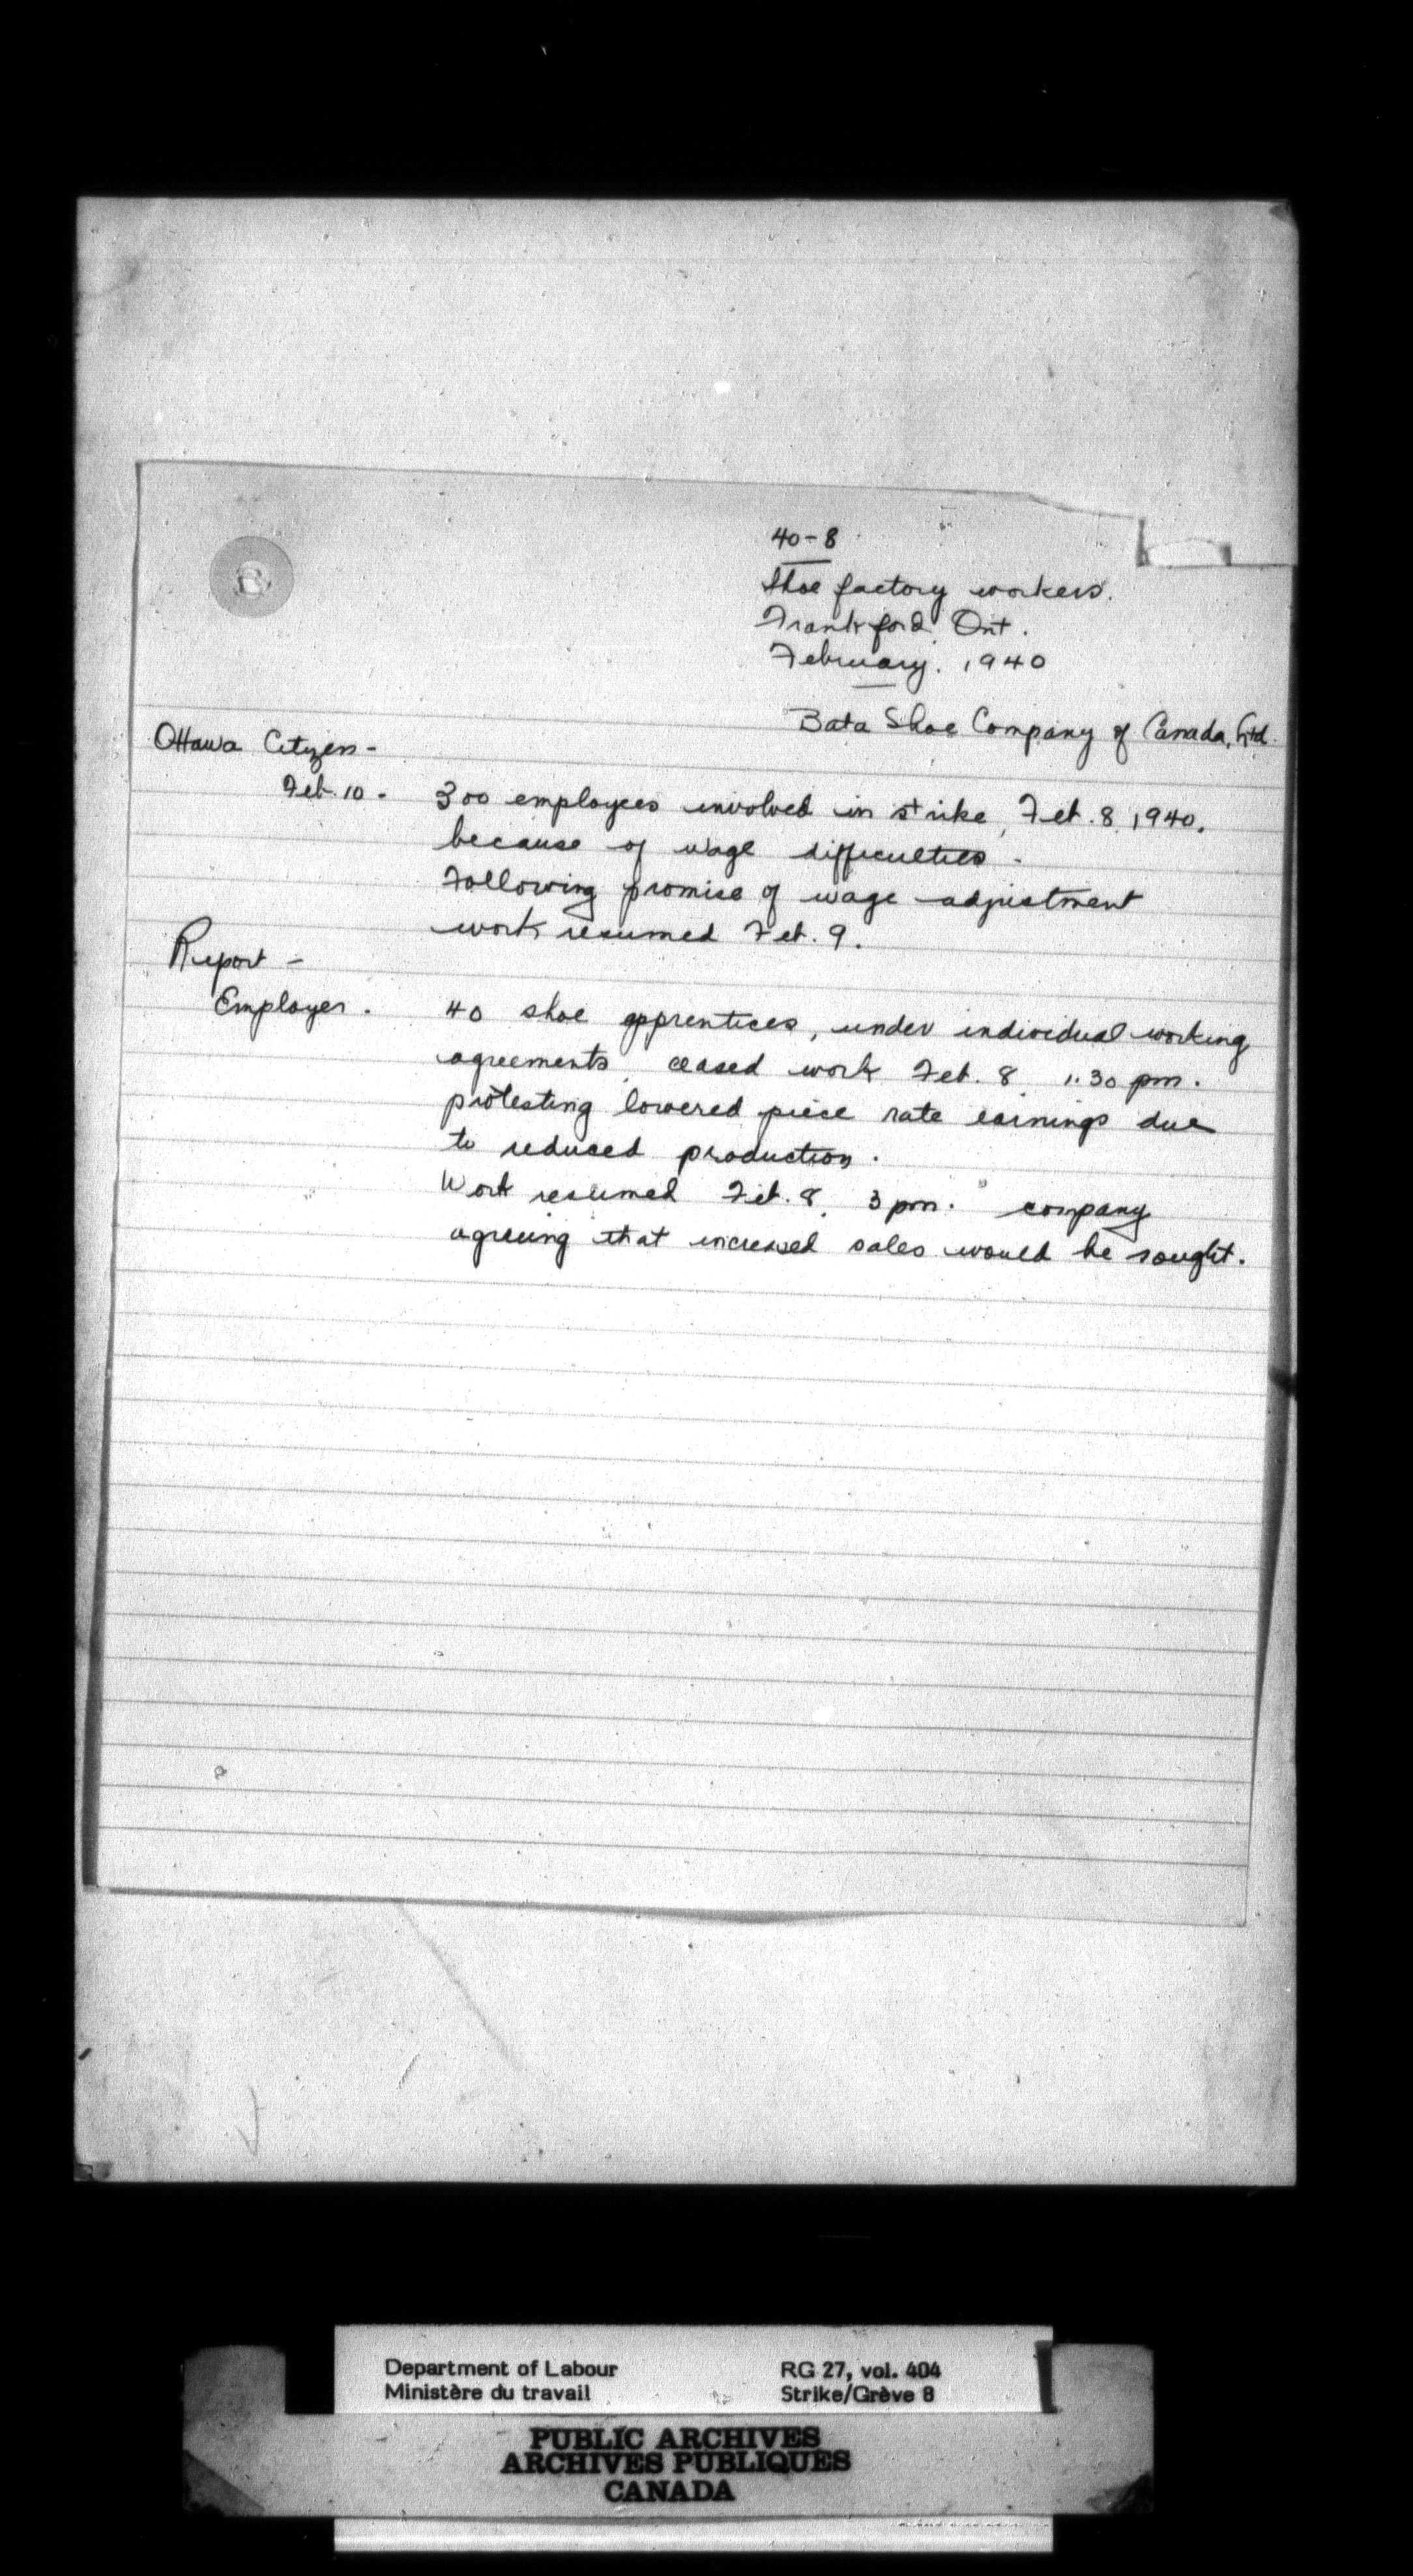 40-8
Shoe factory workers.
Frankford, Ont.
February. 1940
Bata Shoe Company of Canada, Ltd.
Ottawa Citizen -
Feb. 10 - 300 employees involved in strike, Feb. 8, 1940,
because of wage difficulties -
Following promise of wage adjustment
work resumed Feb. 9.
Report -
Employer. 40 shoe apprentices, under individual working
agreements, ceased work Feb. 8 1:30 pm.
protesting lowered piece rate earnings due
to reduced production.
Work resumed Feb. 8, 3 pm. company
agreeing that increased sales would be sought.
Department of Labour
Ministère du travail
RG 27, vol. 404
Strike/Grève 8
PUBLIC ARCHIVES
ARCHIVES PUBLIQUES
CANADA